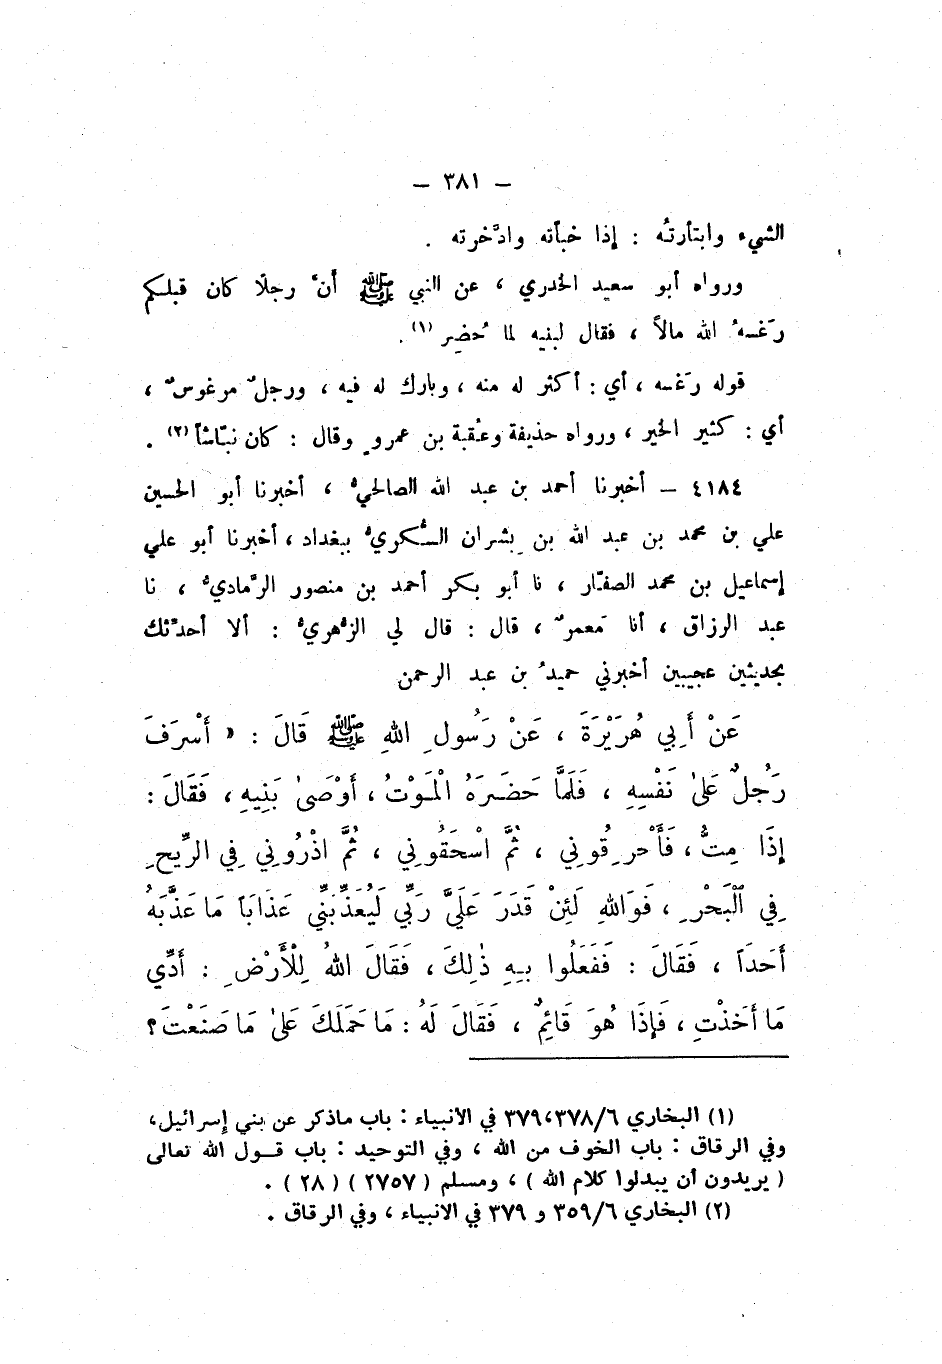 — ٣٨١ —
الشيء وابتأرتُه : إذا خبأته وادَّخرته .
ورواه أبو سعيد الخدري ، عن النبي ﷺ أنَّ رجلًا كان قبلكم
رَغَسهُ الله مالاً ، فقال لبنيه لما حُضِر (١) .
قوله رَغَسه ، أي : أكثر له منه ، وبارك له فيه ، ورجلٌ مرغوسٌ ،
أي : كثير الخير ، ورواه حذيفة وعُقبة بن عمروٍ وقال : كان نبّاشاً (٢) .
٤١٨٤ — أخبرنا أحمد بن عبد الله الصالحيُّ ، أخبرنا أبو الحسين
علي بن محمد بن عبد الله بن بِشران السُّكريُّ ببغداد ، أخبرنا أبو علي
إسماعيل بن محمد الصفّار ، نا أبو بكر أحمد بن منصور الرَّماديُّ ، نا
عبد الرزاق ، أنا مَعمرٌ ، قال : قال لي الزُّهريُّ : ألا أحدِّثك
بحديثين عجيبين أخبرني حميدُ بن عبد الرحمن
عَنْ أَبِي هُرَيْرَةَ ، عَنْ رَسُولِ اللهِ ﷺ قَالَ : « أَسْرَفَ
رَجُلٌ عَلىٰ نَفْسِهِ ، فَلَمَّا حَضَرَهُ الْمَوْتُ ، أَوْصَىٰ بَنِيهِ ، فَقَالَ :
إِذَا مِتُّ ، فَأَحْرِقُونِي ، ثُمَّ اسْحَقُونِي ، ثُمَّ اذْرُونِي فِي الرِّيحِ
فِي الْبَحْرِ ، فَوَاللهِ لَئِنْ قَدَرَ عَلَيَّ رَبِّي لَيُعَذِّبَنِّي عَذَابَاً مَا عَذَّبَهُ
أَحَدَاً ، فَقَالَ : فَفَعَلُوا بِهِ ذٰلِكَ ، فَقَالَ اللهُ لِلْأَرْضِ : أَدِّي
مَا أَخَذْتِ ، فَإِذَا هُوَ قَائِمٌ ، فَقَالَ لَهُ : مَا حَمَلَكَ عَلىٰ مَا صَنَعْتَ ؟
(١) البخاري ٣٧٨/٦،٣٧٩ في الأنبياء : باب ماذكر عن بني إسرائيل ،
وفي الرقاق : باب الخوف من الله ، وفي التوحيد : باب قول الله تعالى
( يريدون أن يبدلوا كلام الله ) ، ومسلم ( ٢٧٥٧ ) ( ٢٨ ) .
(٢) البخاري ٣٥٩/٦ و ٣٧٩ في الأنبياء ، وفي الرقاق .